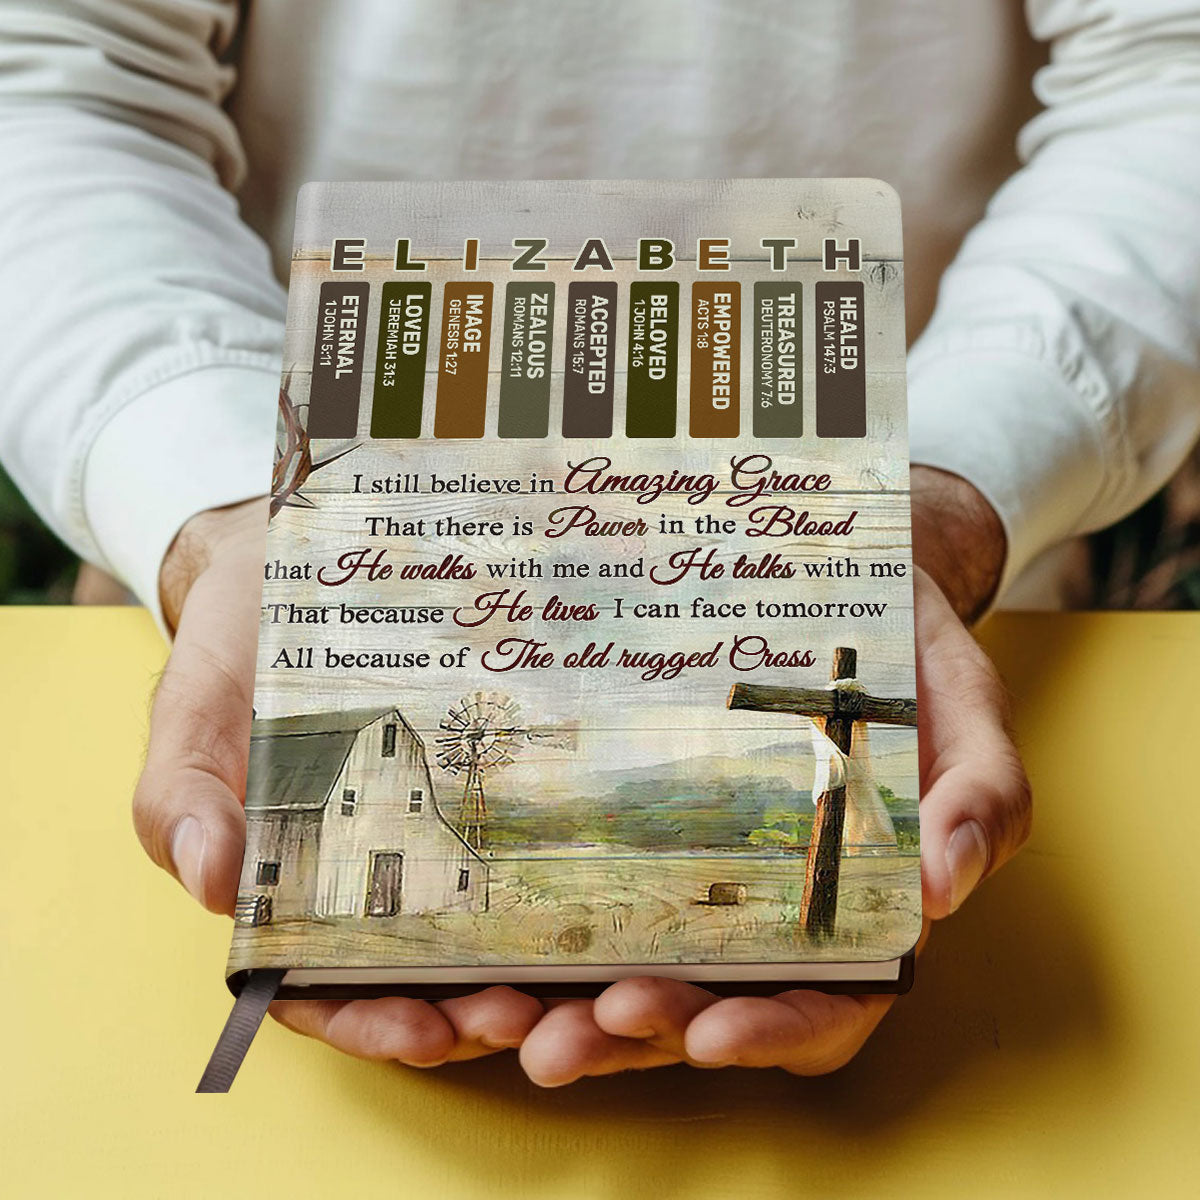 ELIZABETH
ETERNAL
1 JOHN 5:11
LOVED
JEREMIAH 31:3
IMAGE
GENESIS 1:27
ZEALOUS
ROMANS 12:11
ACCEPTED
ROMANS 15:7
BELOVED
1 JOHN 4:16
EMPOWERED
ACTS 1:8
TREASURED
DEUTERONOMY 7:6
HEALED
PSALM 147:3
I still believe in Amazing Grace
That there is Power in the Blood
that He walks with me and He talks with me
That because He lives I can face tomorrow
All because of The old rugged Cross